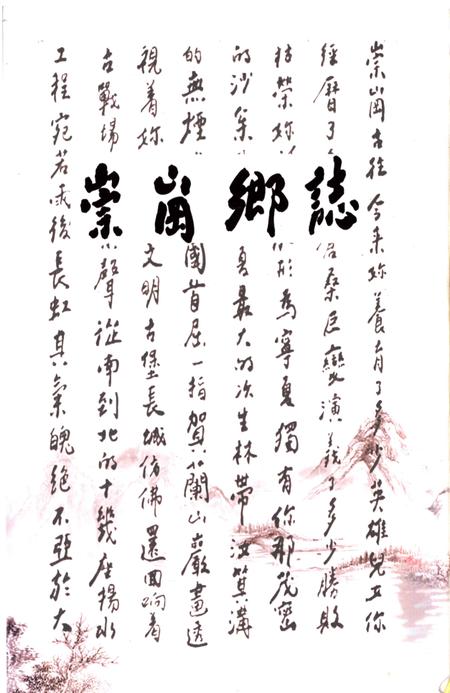 崇崗鄉誌
崇崗古往今来妳養育了多少英雄兒女你
經曆了 桑巨變演義了多少勝敗
枯榮妳 形為寧夏獨有你那茂密
的沙 夏最大的次生林帶汝箕溝
的無煙 國首屈一指賀蘭山岩畫透
視着妳 文明古堡長城仿佛還回响着
古戰場 聲從南到北的十幾座揚水
工程宛若雨後長虹其氣魄絕不亞於大